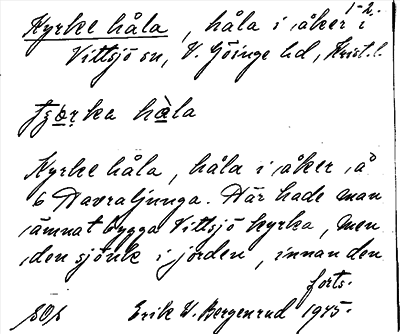 1-2.
Kyrke håla, håla i åker i
Vittsjö sn, V. Göinge hd, Krist. l.
Kyrke håla, håla i åker å
6 Davraljunga. Där hade man
ämnat bygga Vittsjö kyrka, men
den sjönk i jorden, innan den
forts.
Erik W. Bergenrud 1945.